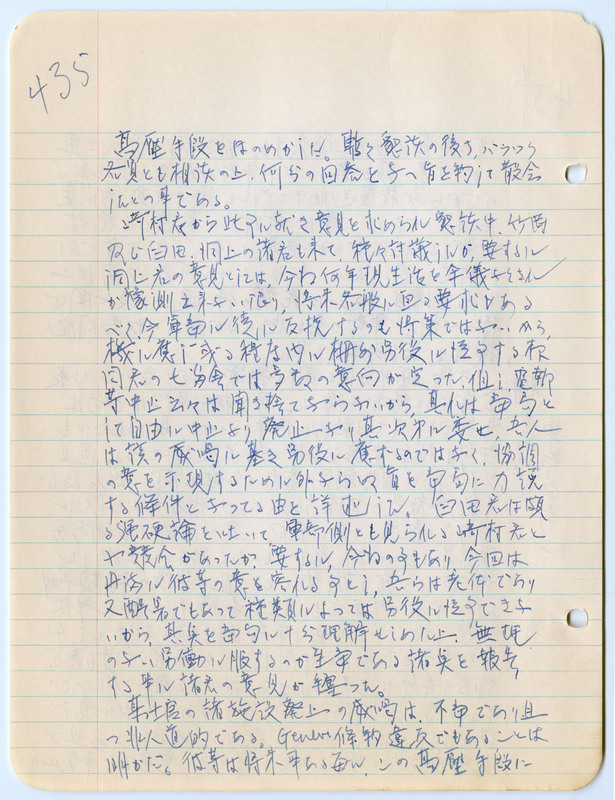 435
高壓手段をほのめかした。暫く懇談の後、バラック
君見とも相談の上、何分の回答と云う旨を約して散会
したとの事である。
崎村君から此件に就き意見を求められ懇談中、竹岡
及び臼田、洞上の諸君も来て、種々討議したが、要するに
洞上君の意見としては、今后何年現生活を余儀なくされ
か豫測出来ない限り、将来各般に亘る要求がある
べく、今軍部に徒に反抗するのも得策ではないから、
機に應じ或る程度内に柵外労役に従事する様
同君の七労舎では多数の意向が定った。但し電部
等中止云々は聞き捨てならないから、其れは当局と
して自由に中止なり廃止なり其次第に委せ、吾人
は該の威嚇に基き労役に應ずるのではなく、協調
の意を示現するために外ならぬ旨を当局に力説
する條件となってる由と詳述した。臼田君は頗
る强硬論を吐いて、軍部側とも見られる崎村君と
や競合があったが、要するに、今后の事もあり、今回は
円満に彼等の意を容れる事とし、吾らは老体であり
又酷暑でもあって種類によっては労役に従事できな
いから、其点を当局に十分理解せしめた上、無理
のない労働に服するのが至当である諸点を報告
する事に諸君の意見が纏った。
某士官の諸施設廃止の威嚇は、不当であり且
つ非人道的である。Geneva條約違反でもあることは
明かだ。彼等は将来事ある毎に、この高壓手段に